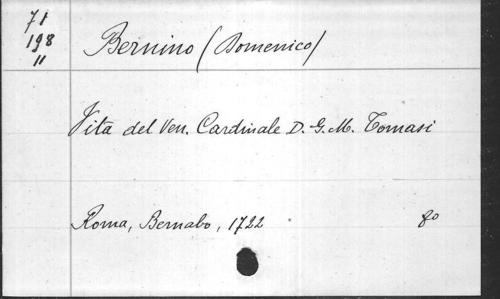 71
198
11
Bernino (Domenico)
Vita del Ven. Cardinale D. G. M. Tomasi
Roma, Bernabo, 1722 8o